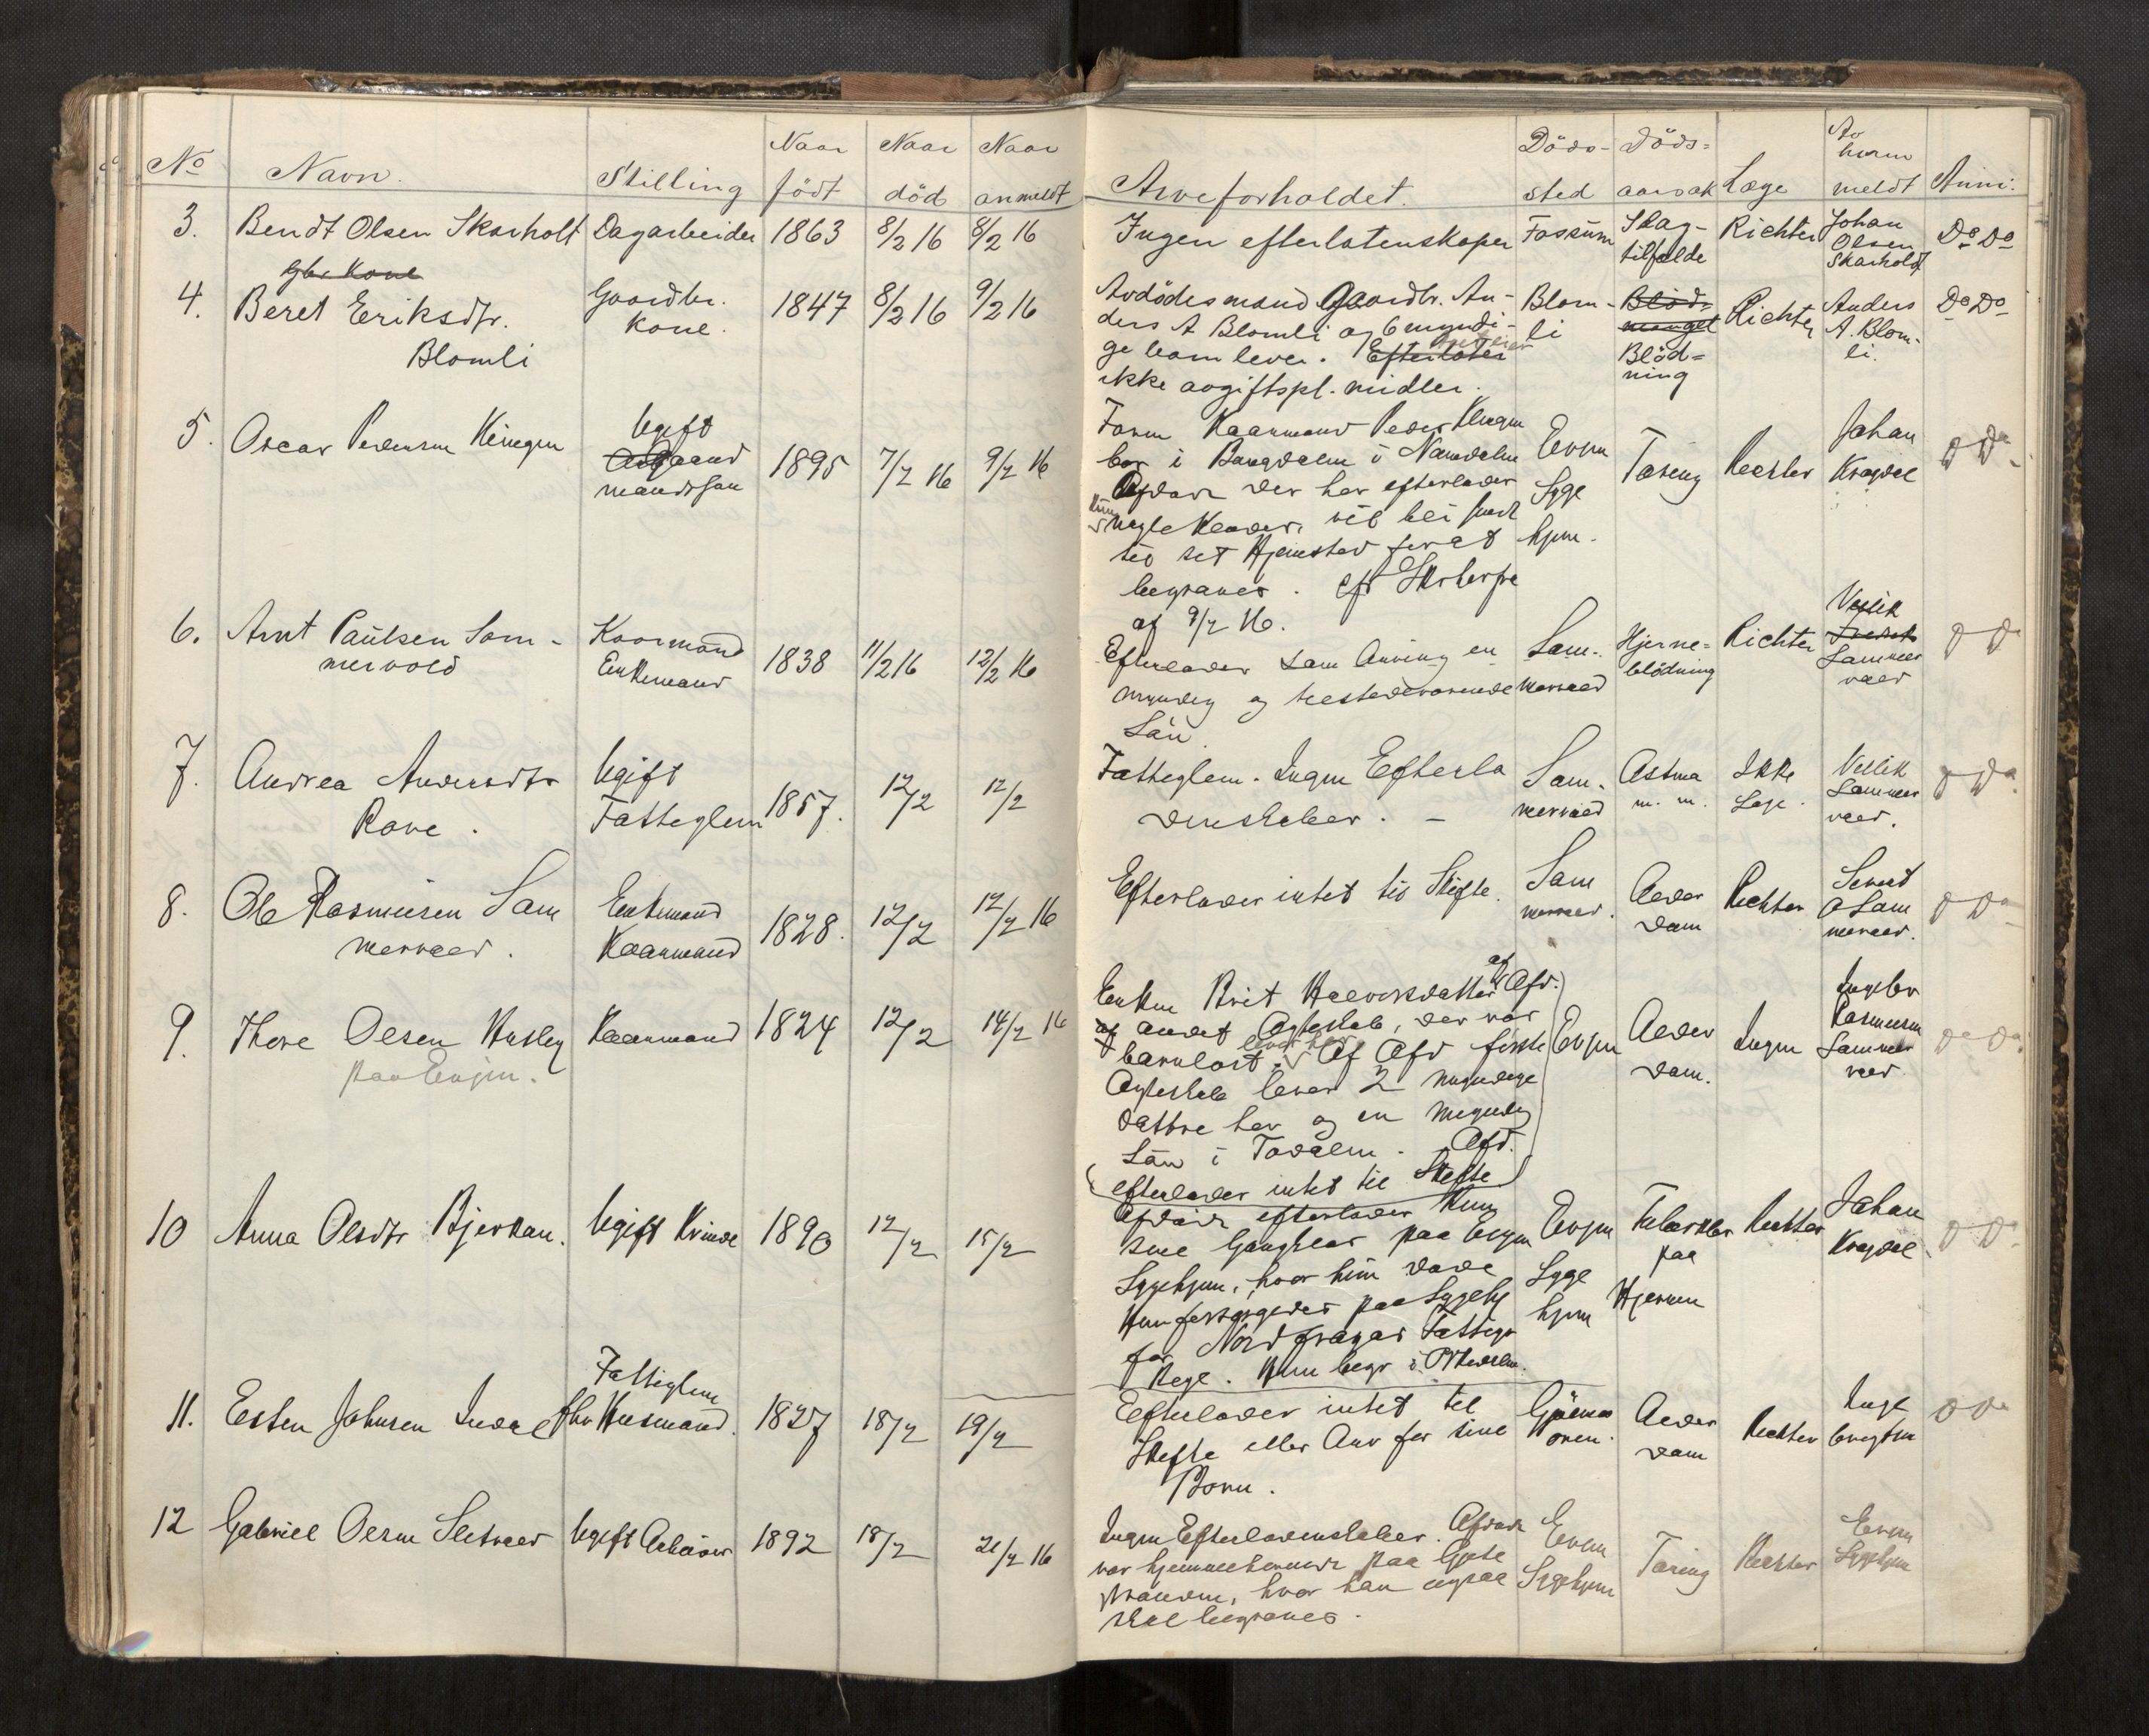 No Navn. Stilling Naar födt Naar död Naar anmeldt
Arveforholdet. Döds-sted Döds=aarsak Læge Av hvem meldt Anm.
3. Bendt Olsen Skarholt Dagarbeider 1863 8/2 16 8/2 16
Ingen efterlatenskaper Fossum Slag-tilfælde Richter Johan Olsen Skarholdt Do Do
4. Beret Eriksdtr. Blomli
Gaardbr. Kone. 1847 8/2 16 9/2 16
Avdödes mand Gaardbr. An-
ders A Blomli og 6 myndi-
ge barn lever. Efterlater
ikke avgiftspl. midler.
Blom-li
Blöd=
manget
Blöd=
ning
Richter
Anders A. Blom-li.
Do Do
5. Oscar Pedersen
Ugift
1895 7/2 16 9/2 16
Faren Kaarmand Peder
bor i i Namdalen
Afdøde der har efterlader
Kun nogle Klæder, vil bli sendt
til sit Hjemsted for at
begraves.
af 9/2 16.
Syge
hjem.
Tæring Richter Johan Kregdal
6. Arnt Paulsen Sam-
mervold
Kaarmand
Enkemand
1838 11/2 16 12/2 16
Efterlader som Arving en
myndig og tilstedeværende
Sön
Sam-
mervold
Hjerne=
blödning
Richter
Sammer
vold
7. Andrea Andersdtr
Rove.
Ugift
Fattiglem
1857. 12/2 12/2
Fattiglem. Ingen Efterla
denskaber. -
Sam-
mervold
Astma
m. m.
Ikke
Læge.
Sammer
vold.
8. Ole Rasmusen Sam
mervold.
Enkemand
Kaarmand
1828. 12/2 12/2 16
Efterlader intet til Skifte.
Sam
mervold.
Alder
dom
Richter
Sivert
O Sam
mervold.
9. Thore Olsen Husby
paa Evjen.
Kaarmand 1824 12/2 14/2 16
Enken Brit Halvorsdatter af Afd.
andet Ægteskab, der var
barnlöst. Af Afd förste
Ægteskab lever 2 myndige
Döttre her og en myndig
Sön i Todalen. Afd.
efterlader intet til Skifte
Evjen
Alder
dom.
Ingen
Ingebr
Rasmusen
Sammer
vold
10 Anna Olsdtr Bjerkan. Ugift Kvinde 1890 12/2 15/2
Afdöde efterlader Kun
sine Gangklær paa Evjen
Sygehjem, hvor hun döde
Hun forsørgedes paa Sygehj
for Fattigv
Hun begr i
Evjen
Syge
hjem
Tuberkler
paa
Hjernen
Richter
Johan
Kregdal
11. Esten Johnsen
Fattiglem
fhv Husmand.
1827 18/2 19/2
Efterlader intet til
Skifte eller Arv for sine
Börn.
Alder
dom
Richter
Inge
brigtsen
12 Gabriel Olsen Sletvold Ugift Arbeider 1892 18/2 21/2 16
Ingen Efterladenskaber. Afdøde
var hjemmehørende paa Gjete
stranden, hvor han ogsaa
skal begraves.
Evjen
Sygehjem
Tæring
Richter
Evjen
Sygehjem